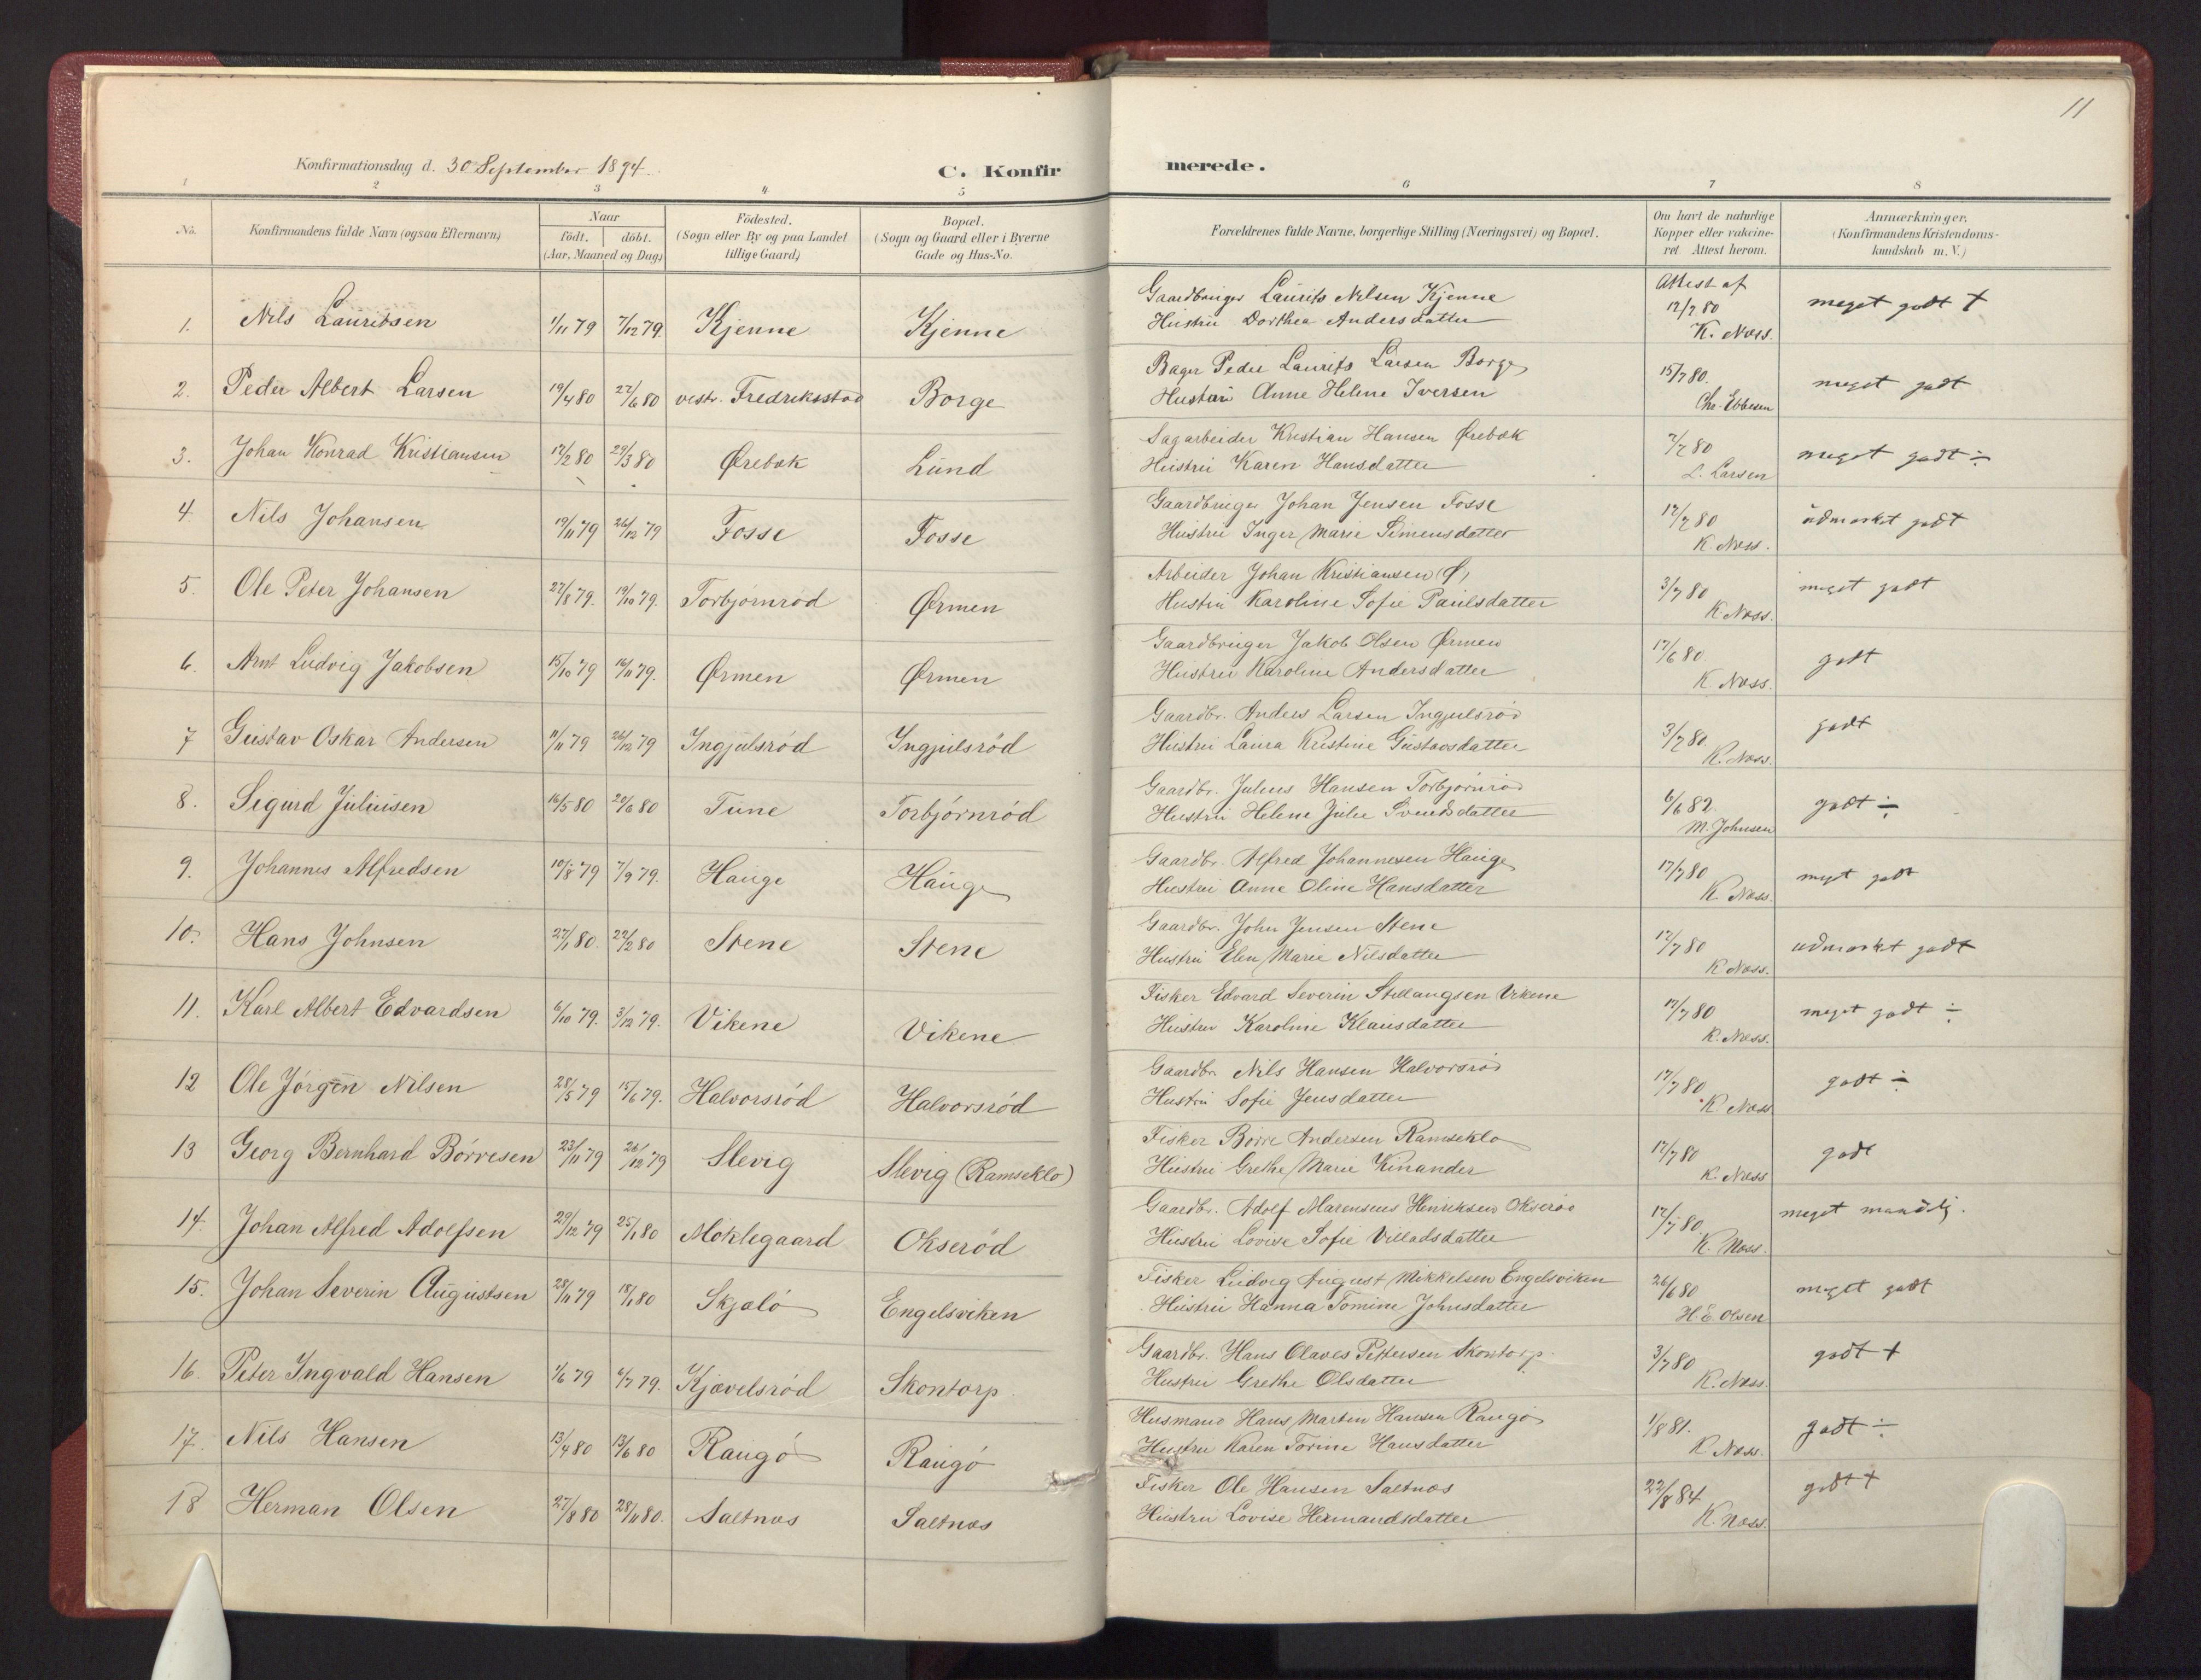 11
Konfirmationsdag d. 30 September 1894.
C. Konfir
merede.
1 2 3 4 5 6 7 8
No.
Konfirmandens fulde Navn (ogsaa Efternavn)
Naar
født. døbt.
(Aar, Maaned og Dag)
Födested.
(Sogn eller By og paa Landet
tillige Gaard)
Bopæl.
(Sogn og Gaard eller i Byerne
Gade og Hus-No.
Forældrenes fulde Navne, borgerlige Stilling (Næringsvei) og Bopæl.
Om havt de naturlige
Kopper eller vakcine-
ret Attest herom.
Anmærkninger.
(Konfirmandens Kristendoms-
kundskab m. V.)
1. Nils Lauritsen 1/11 79 7/12 79. Kjenne Kjenne
Gaardbruger Laurits Nilsen Kjenne
Hustru Dorthea Andersdatter
Attest af
12/7 80
K. Næss.
meget godt +
2. Peder Albert Larsen 19/4 80 27/6 80 vestr. Fredriksstad Borge
Bager Peder Laurits Larsen Borge
Hustru Anne Helene Iversen
15/7 80.
Chr. Ebbesen
meget godt
3. Johan Konrad Kristiansen 12/2 80 29/3 80 Ørebæk Lund
Sagarbeider Kristian Hansen Ørebæk
Hustru Karen Hansdatter
7/7 80
L. Larsen
meget godt ÷
4. Nils Johansen 19/11 79 26/12 79 Fosse Fosse
Gaardbruger Johan Jensen Fosse
Hustru Inger Marie Simensdatter
12/7 80
K. Næss.
udmærket godt
5. Ole Peter Johansen 27/8 79. 19/10 79. Torbjørnrød Ørmen
Arbeider Johan Kristiansen Ø,
Hustru Karoline Sofie Paulsdatter
3/7 80
K. Næss.
meget godt
6. Arnt Ludvig Jakobsen 15/10 79 16/11 79. Ørmen Ørmen
Gaardbruger Jakob Olsen Ørmen
Hustru Karoline Andersdatter
17/6 80.
K. Næss.
godt
7 Gustav Oskar Andersen 11/11 79 26/12 79 Ingjulsrød Ingjulsrød
Gaardbr. Anders Larsen Ingjulsrød
Hustru Laura Kristine Gustavsdatter
3/7 80.
K. Næss.
godt
8. Sigurd Juliusen 16/5 80 20/6 80 Tune Torbjørnrød
Gaardbr. Julius Hansen Torbjørnrød
Hustru Helene Julie Svendsdatter
6/6 82.
M. Johnsen
godt ÷
9. Johannes Alfredsen 10/8 79 7/9 79. Hauge Hauge
Gaardbr. Alfred Johannesen Hauge
Hustru Anne Oline Hansdatter
17/7 80
K. Næss.
myt godt
10. Hans Johnsen 27/1 80. 22/2 80 Stene Stene
Gaardbr. John Jensen Stene
Hustru Elen Marie Nilsdatter
12/7 80
K. Næss.
udmærket godt
11. Karl Albert Edvardsen 6/10 79. 3/12 79. Vikene Vikene
Fisker Edvard Severin Stillaugsen Vikene
Hustru Karoline Klausdatter
17/7 80
K. Næss.
meget godt ÷
12 Ole Jørgen Nilsen 28/5 79 15/6 79. Halvorsrød Halvorsrød
Gaardbr. Nils Hansen Halvorsrød
Hustru Sofie Jensdatter
17/7 80
K. Næss
godt ÷
13 Georg Bernhard Børresen 23/11 79 26/12 79 Slevig Slevig (Ramseklo)
Fisker Børre Andersen Ramseklo
Hustru Grethe Marie Kinander
12/7 80
K. Næss
godt
14. Johan Alfred Adolfsen 29/12 79 25/1 80 Møklegaard Okserød
Gaardbr. Adolf Marensius Henriksen Okserød
Hustru Lovise Sofie Villadsdatter
12/7 80
K. Næss.
meget maadelig.
15. Johan Severin Augustsen 28/11 79 18/1 80 Skjælø Engelsviken
Fisker Ludvig August Mikkelsen Engelsviken
Hustru Hanna Tomine Johnsdatter
26/6 80
H. E. Olsen
meget godt
16. Peter Ingvald Hansen 1/6 79 6/7 79. Kjævelsrød Skontorp
Gaardbr. Hans Olaves Pettersen Skontorp.
Hustru Grethe Olsdatter
3/7 80
K. Næss.
godt +
17. Nils Hansen 13/4 80 13/6 80 Raugø Raugø
Husmand Hans Martin Hansen Raugø
Hustru Karen Torine Hansdatter
1/8 81.
K. Næss.
godt ÷
18 Herman Olsen 27/8 80 28/11 80. Saltnæs Saltnæs
Fisker Ole Hansen Saltnæs
Hustru Lovise Hermandsdatter
22/8 84
K. Næss.
godt +